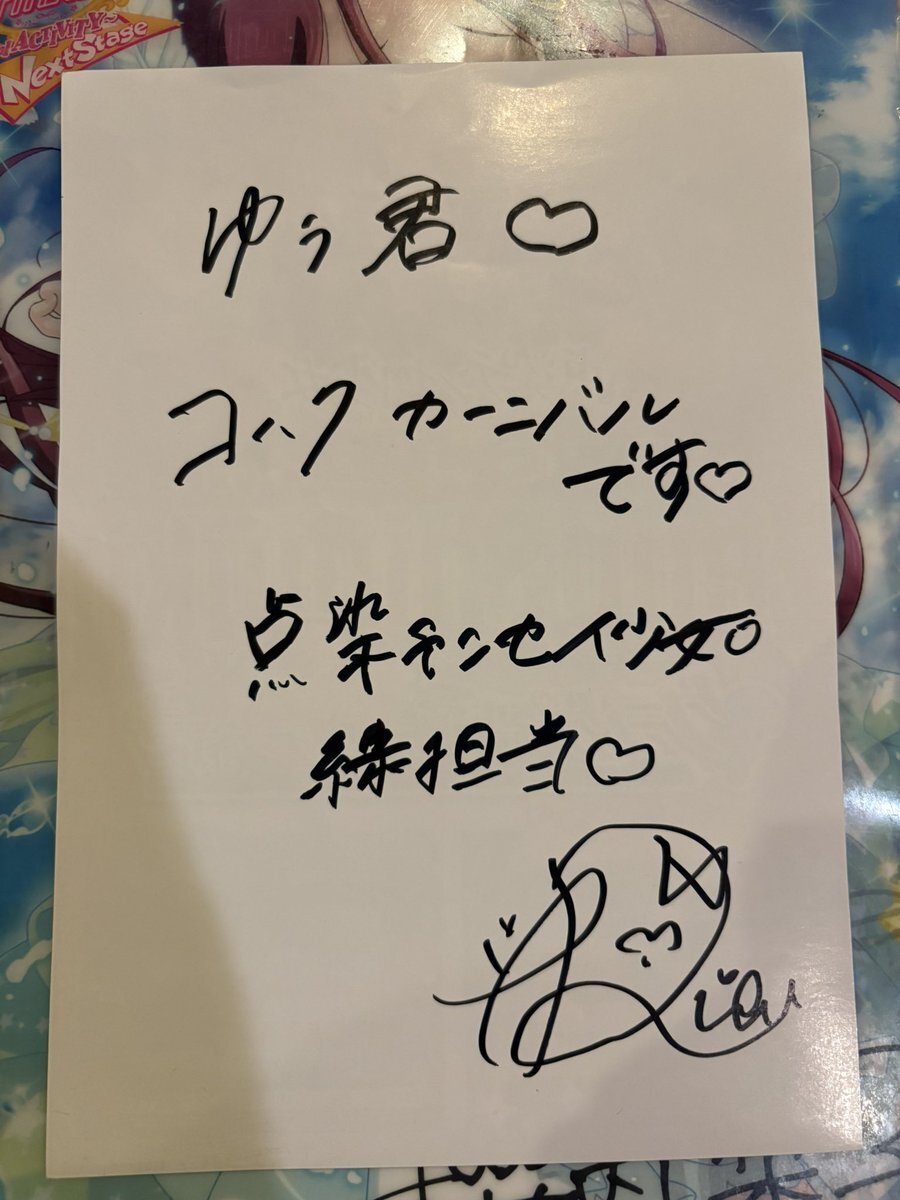 ACTIVITY
Next Stage
ゆう君♡
コハク カーニバル
です♡
点染テンセイ少女。
緑担当♡